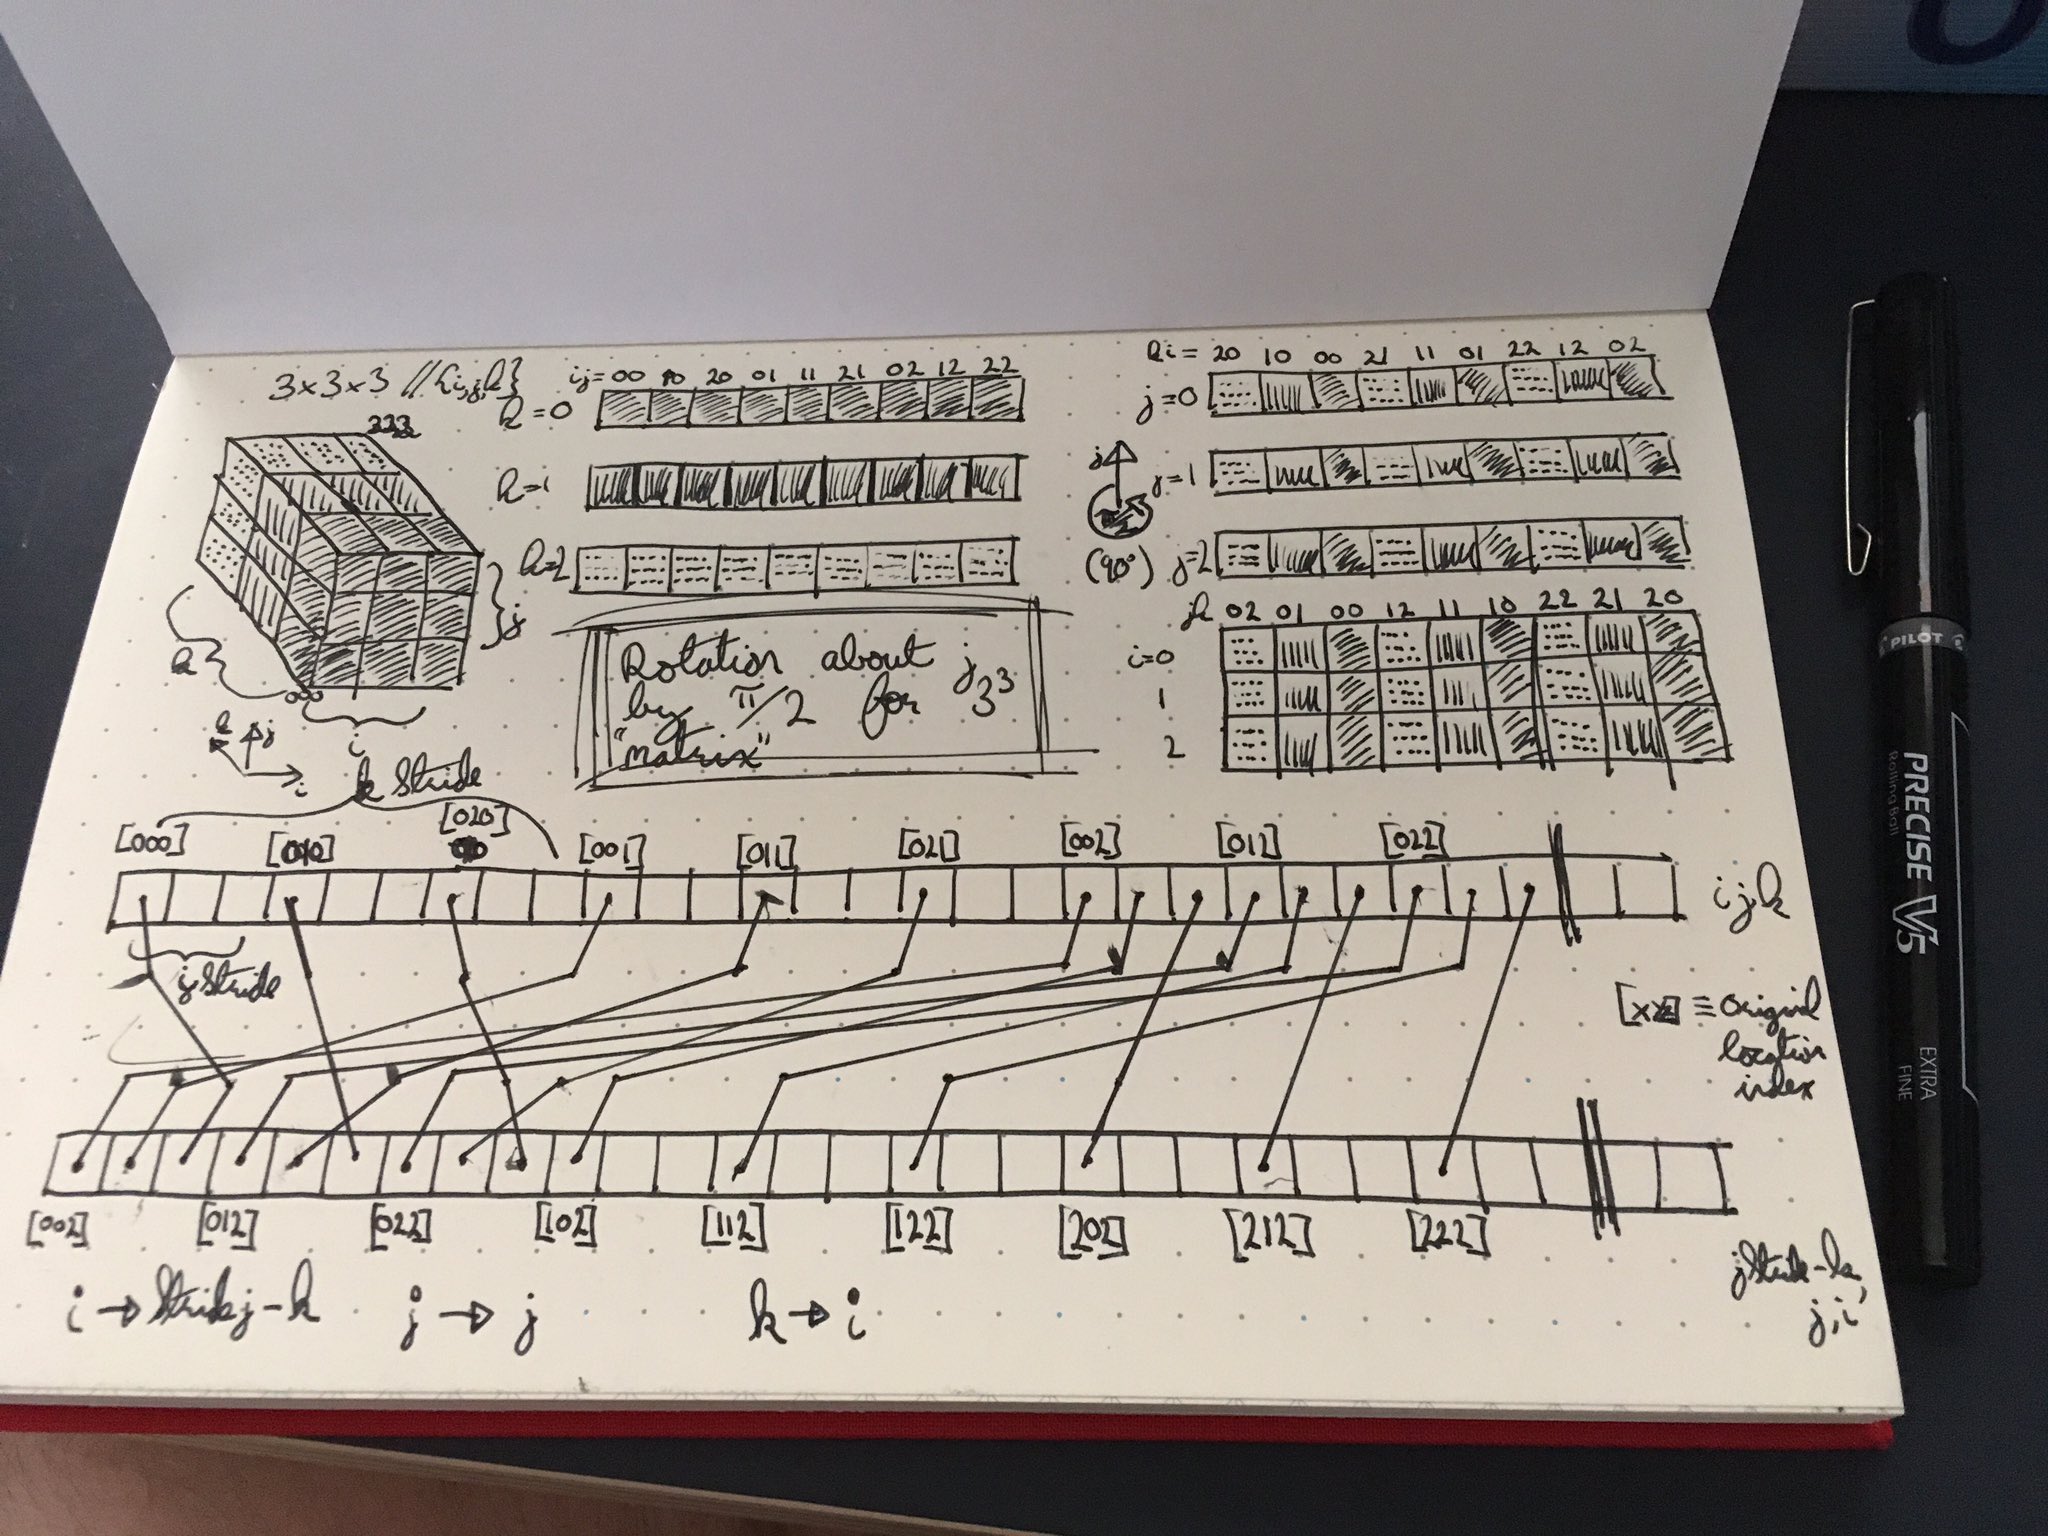 3×3×3 //{i,j,k}
222
k
j
i
000
k j
i
ij= 00 10 20 01 11 21 02 12 22
k=0
k=1
k=2
Rotation about j
by π/2 for 3³
"matrix"
ki= 20 10 00 21 11 01 22 12 02
j=0
j
j=1
(90°) j=2
jk 02 01 00 12 11 10 22 21 20
i=0
1
2
k stride
[000] [010] [020] [001] [011] [021] [002] [012] [022]
ijk
j stride
[xxx] ≡ original
location
index
[002] [012] [022] [102] [112] [122] [202] [212] [222]
jstride-k,
j,i
i → stridej-k j → j k → i
PILOT
PRECISE V5
Rolling Ball
EXTRA
FINE